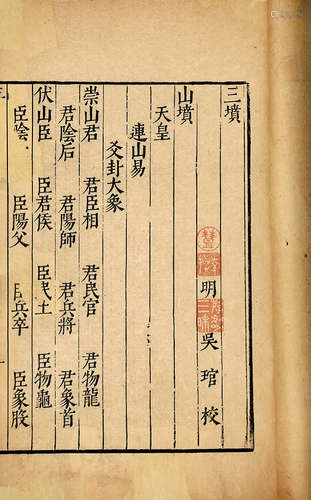 三墳
明 吳琯 校
山墳
天皇
連山易
爻卦大象
崇山君 君臣相 君民官 君物龍
君陰后 君陽師 君兵將 君象首
伏山臣 臣君侯 臣民士 臣物龜
臣陰 臣陽父 臣兵卒 臣象股